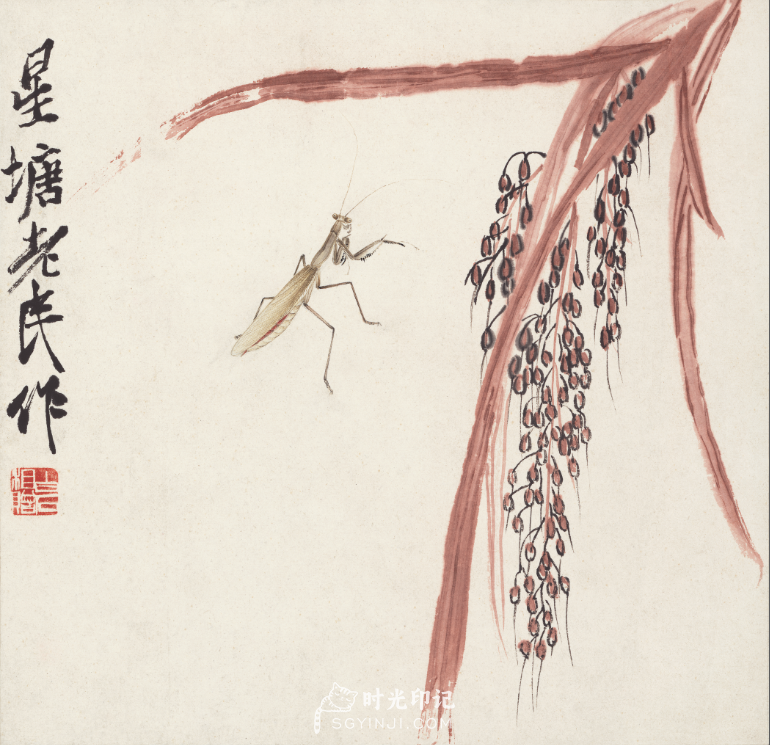 星塘老民作
时光印记
SGYINJI.COM